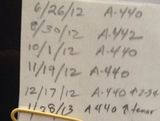 6/26/12 A-440
8/30/12 A-442
10/1/12 A-440
11/19/12 A-440
12/17/12 A-440 ↑2-3¢
1/28/13 A440 ↑tenor